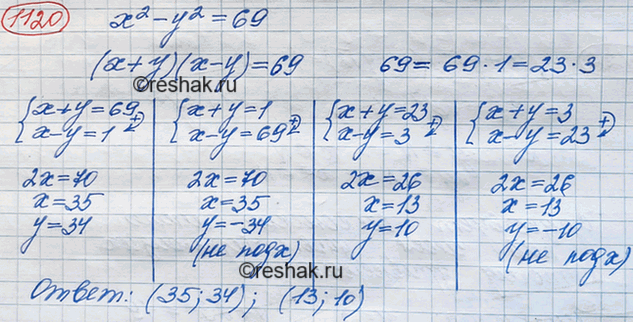 1120
x² - y² = 69
(x+y)(x-y) = 69
69 = 69 · 1 = 23 · 3
©reshak.ru
{ x+y=69
x-y=1 (+)
2x=70
x=35
y=34
{ x+y=1
x-y=69 (+)
2x=70
x=35
y=-34
(не подх)
{ x+y=23
x-y=3 (+)
2x=26
x=13
y=10
{ x+y=3
x-y=23 (+)
2x=26
x=13
y=-10
(не подх)
©reshak.ru
Ответ: (35; 34); (13; 10)